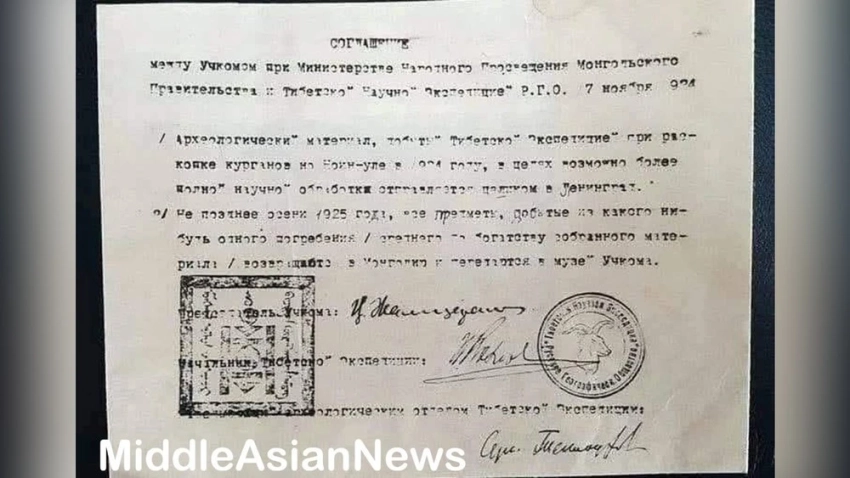 СОГЛАШЕНИЕ
между Учкомом при Министерстве Народного Просвещения Монгольского
Правительства и Тибетско" Научно" Экспедицие" Р.Г.О. 7 ноября 924
1/ Археологически" материал, добыты" Тибетско" Экспедицие" при рас-
копке курганов на Ноин-уле в 1924 году, в целях возможно более
полно" научно" обработки отправляется целиком в Ленинград.
2/ Не позднее осени 1925 года, все предметы, добытые из какого ни-
будь одного погребения / среднего по богатству собранного мате-
риала / возвращаются в Монголию и передаются в музе" Учкома.
Председатель Учкома:
Начальник Тибетско" Экспедиции:
археологическим отделом Тибетской Экспедиции:
MiddleAsianNews